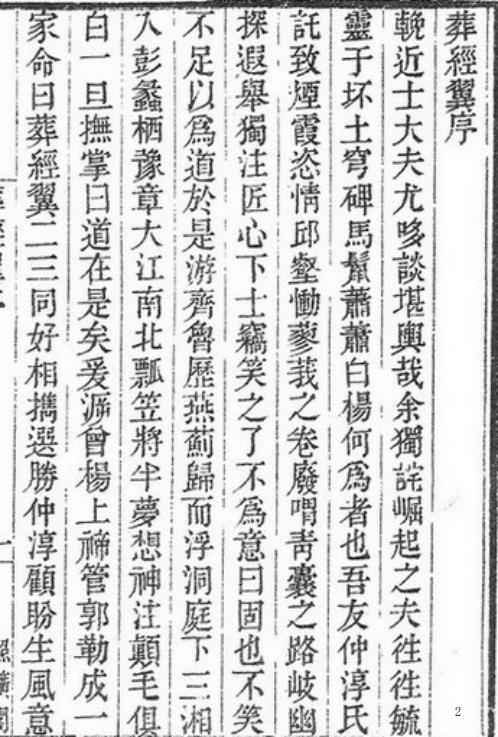 葬經翼序
輓近士大夫尤哆談堪輿哉余獨詫崛起之夫徃徃毓
靈于坏土穹碑馬鬣蕭蕭白楊何爲者也吾友仲淳氏
託致煙霞恣情邱壑慟蓼莪之卷廢喟靑囊之路岐幽
探遐舉獨注匠心下士竊笑之了不爲意曰固也不笑
不足以爲道於是游齊魯歷燕薊歸而浮洞庭下三湘
入彭蠡栖豫章大江南北瓢笠將半夢想神注顚毛俱
白一旦撫掌曰道在是矣爰溯曾楊上禘管郭勒成一
家命曰葬經翼二三同好相攜選勝仲淳顧盼生風意
一
2